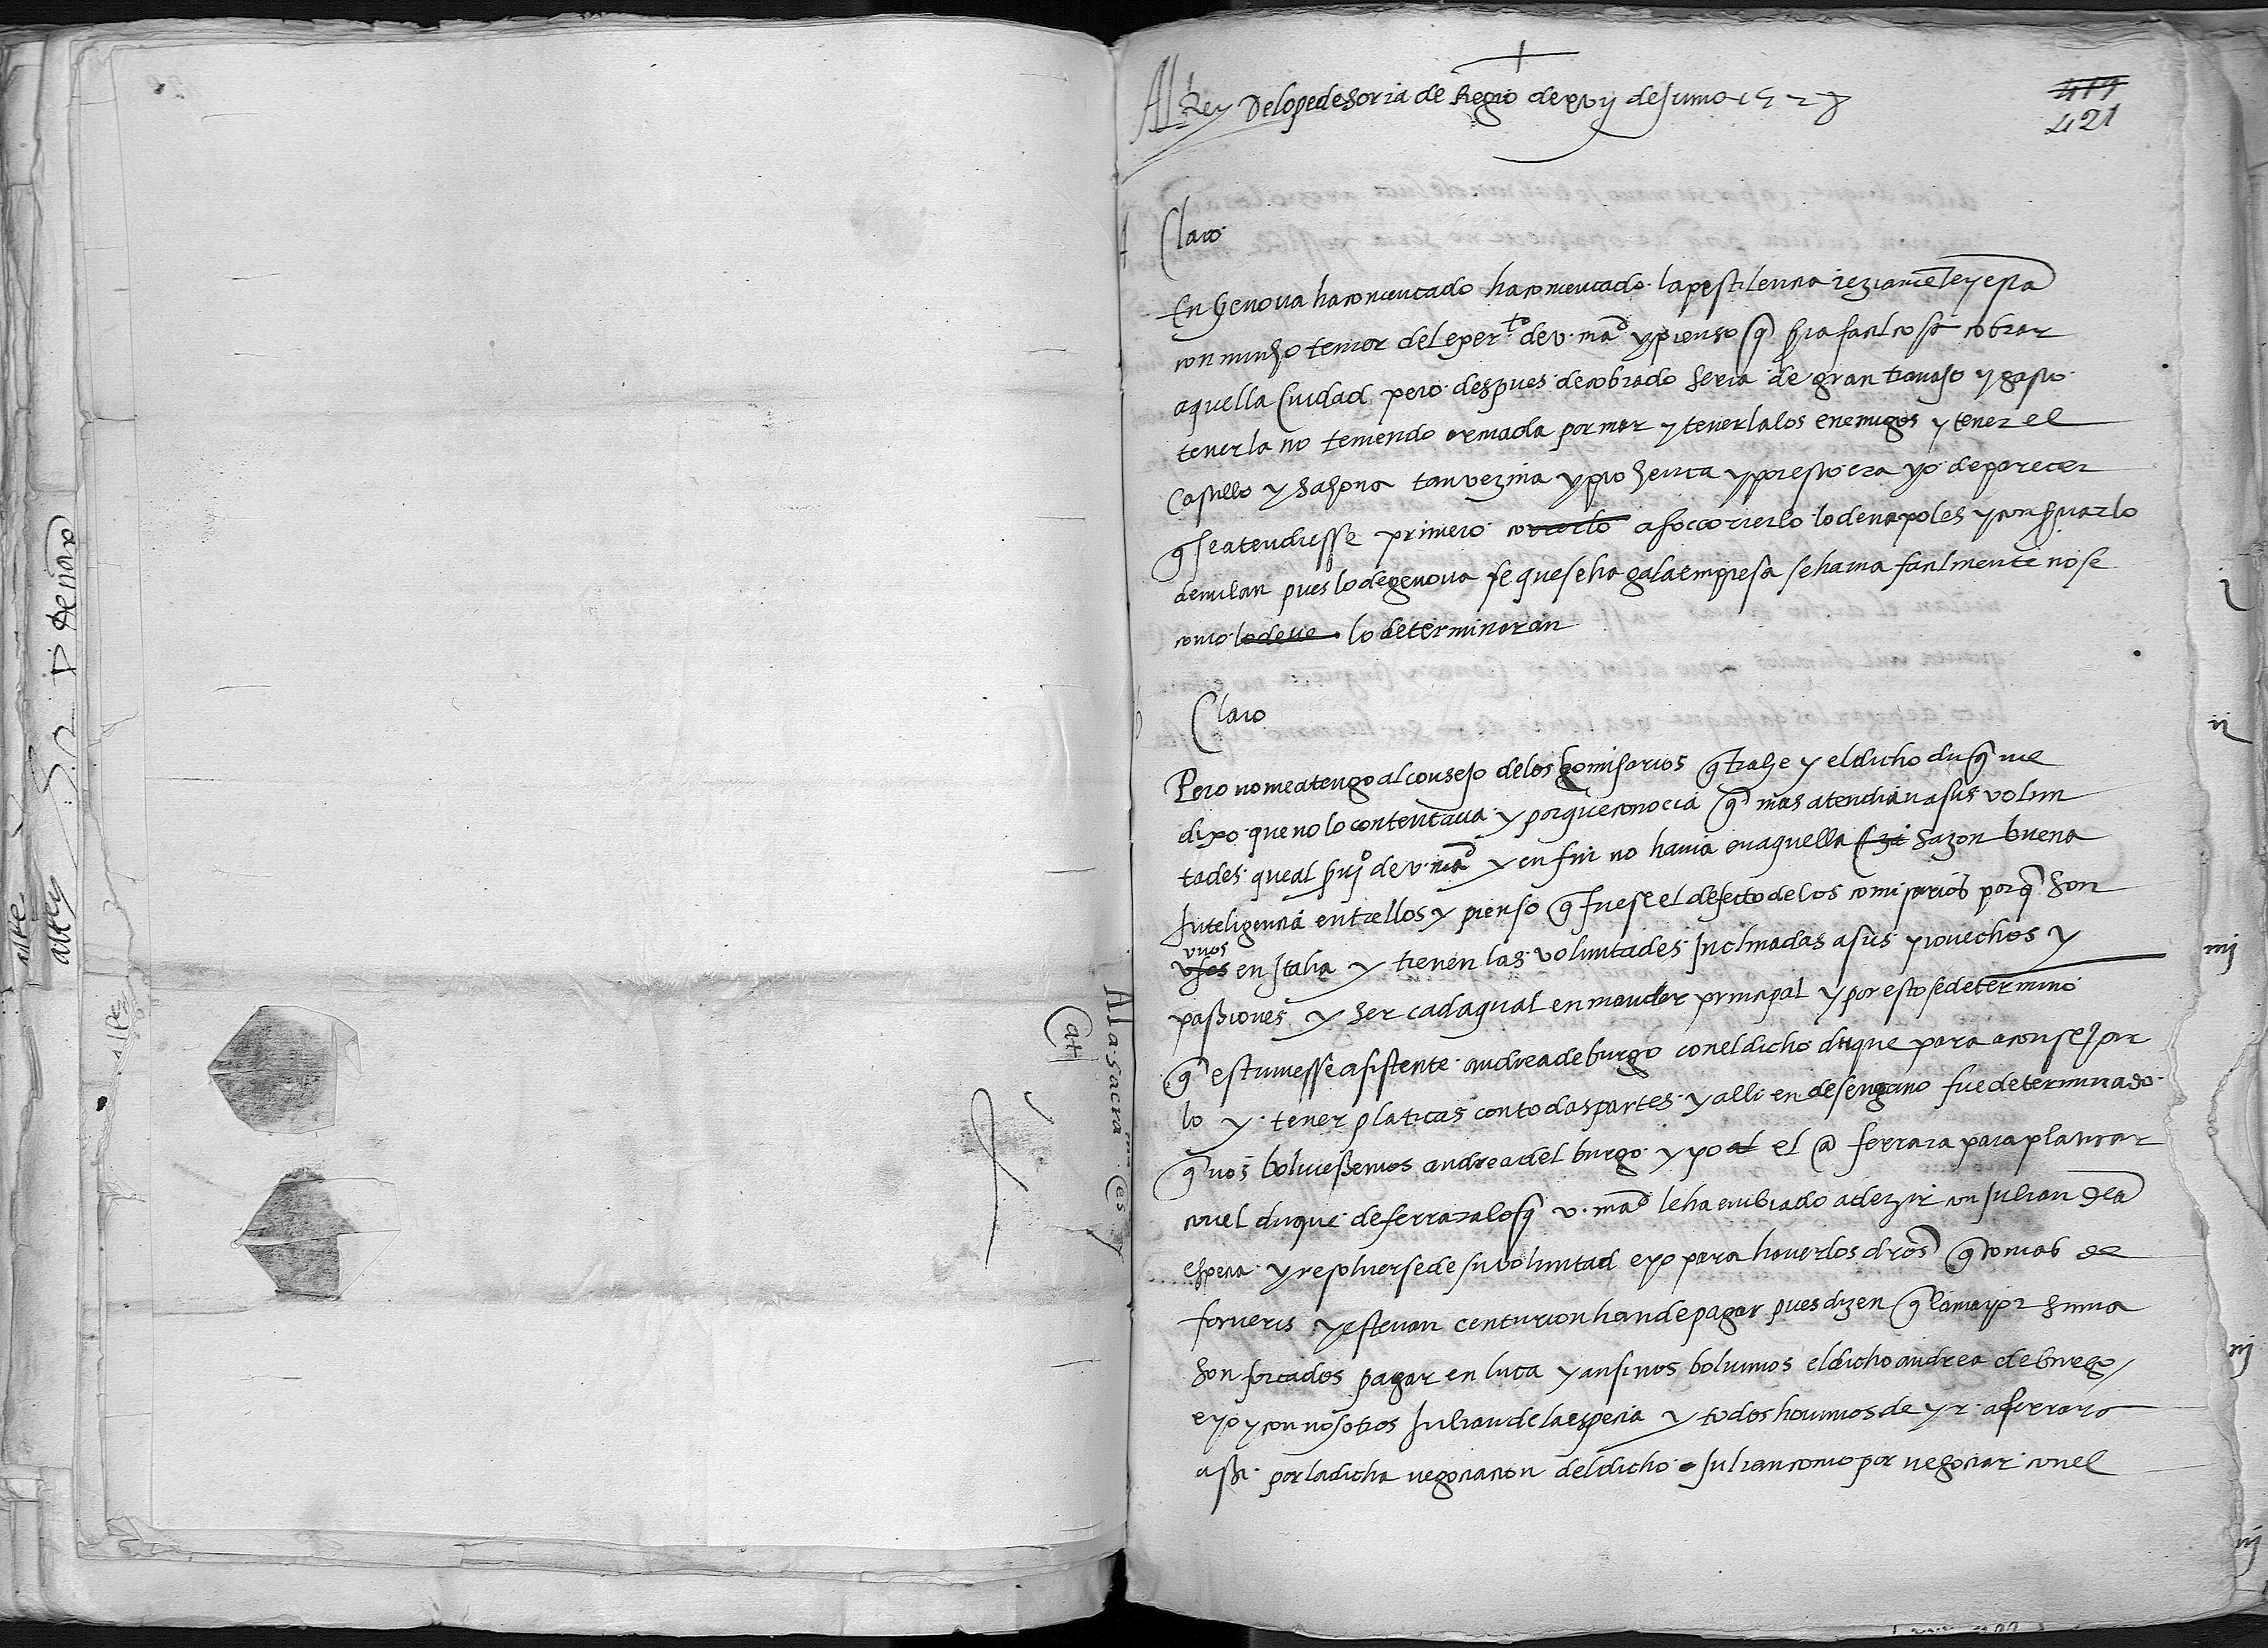 A la Sacra
Ces y
Cat
Al Rey De lope de Soria de Regio de xvij de Junio 1528
419
421
Claro
En Genoua ha comencado ha comencado la pestilencia reziamẽte y esta
con mucho temor del exerto de v. mad y pienso q̃ sria facil cosa cobrar
aquella Ciudad pero despues de cobrado seria de gran trauajo y gasto
tenerla no teniendo armada por mar y tenerla los enemigos y tener el
Castillo y Sahona tan vezina y prohenca y por esto era yo de parecer
q̃ se atendiesse primero correrlo a soccorrerlo lo de napoles y conseruar lo
de milan pues lo de genoua se que se haga la empresa se haria facilmente no se
como lo deue lo determinaran
Claro
Pero no me atengo al consejo de los Comisarios q̃ trahe y el dicho duq̃ me
dixo que no lo contentaua y porque conocia q̃ mas atendian a sus volun
tades que al srujo de v. mad y en fin no hauia en aquella sazon buena
Inteligencia entrellos y pienso q̃ fuese el defecto de los comisarios porq̃ son
vnos
vsos en Italia y tienen las voluntades Inclinadas a sus prouechos y
passiones y ser cada qual en mandar principal y por esto se determino
q̃ estuuiesse asistente andrea de burgo con el dicho duque para aconsejar
lo y tener platicas con todas partes y alli en desengano fue determinado
q̃ nos boluiessemos andrea del burgo y yo al el @ ferrara para platicar
con el duque de ferrara lo q̃ v. mad le ha embiado a dezir con Julian dela
especia y resoluerse de su voluntad e yo para hauer los dros q̃ tomas de
forneris y esteuan centurion han de pagar pues dizen q̃ la mayor suma
son forcados pagar en luca y ansi nos boluimos el dicho andrea de burgo
e yo y con nosotros Julian de la especia y todos houimos de yr a ferrara
assi por la dicha negociacion del dicho Julian como por negociar con el